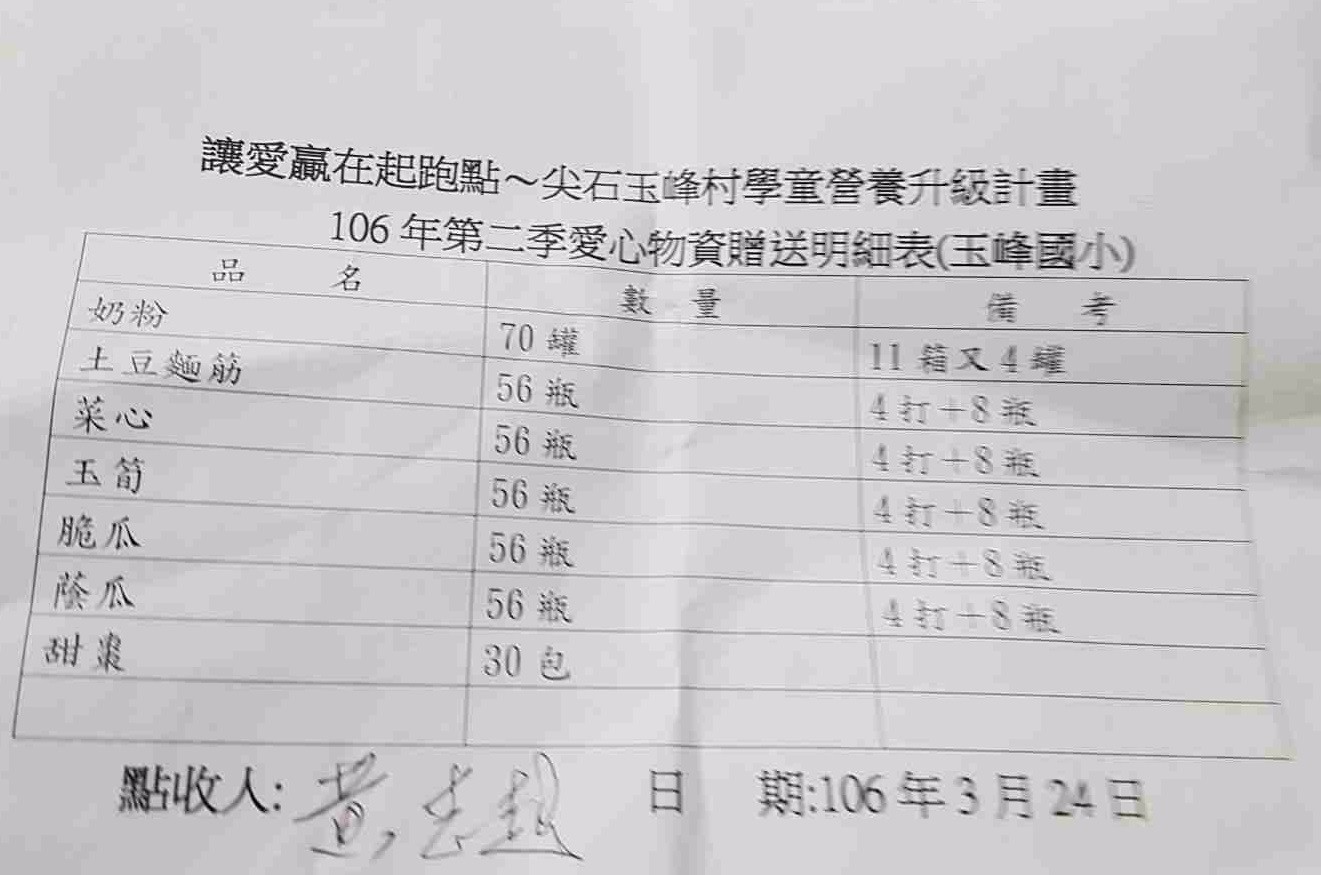 讓愛贏在起跑點～尖石玉峰村學童營養升級計畫
106 年第二季愛心物資贈送明細表(玉峰國小)
品 名 數 量 備 考
奶粉 70 罐 11 箱又 4 罐
土豆麵筋 56 瓶 4 打+8 瓶
菜心 56 瓶 4 打+8 瓶
玉筍 56 瓶 4 打+8 瓶
脆瓜 56 瓶 4 打+8 瓶
蔭瓜 56 瓶 4 打+8 瓶
甜棗 30 包
點收人: 黃 志 日 期:106 年 3 月 24 日